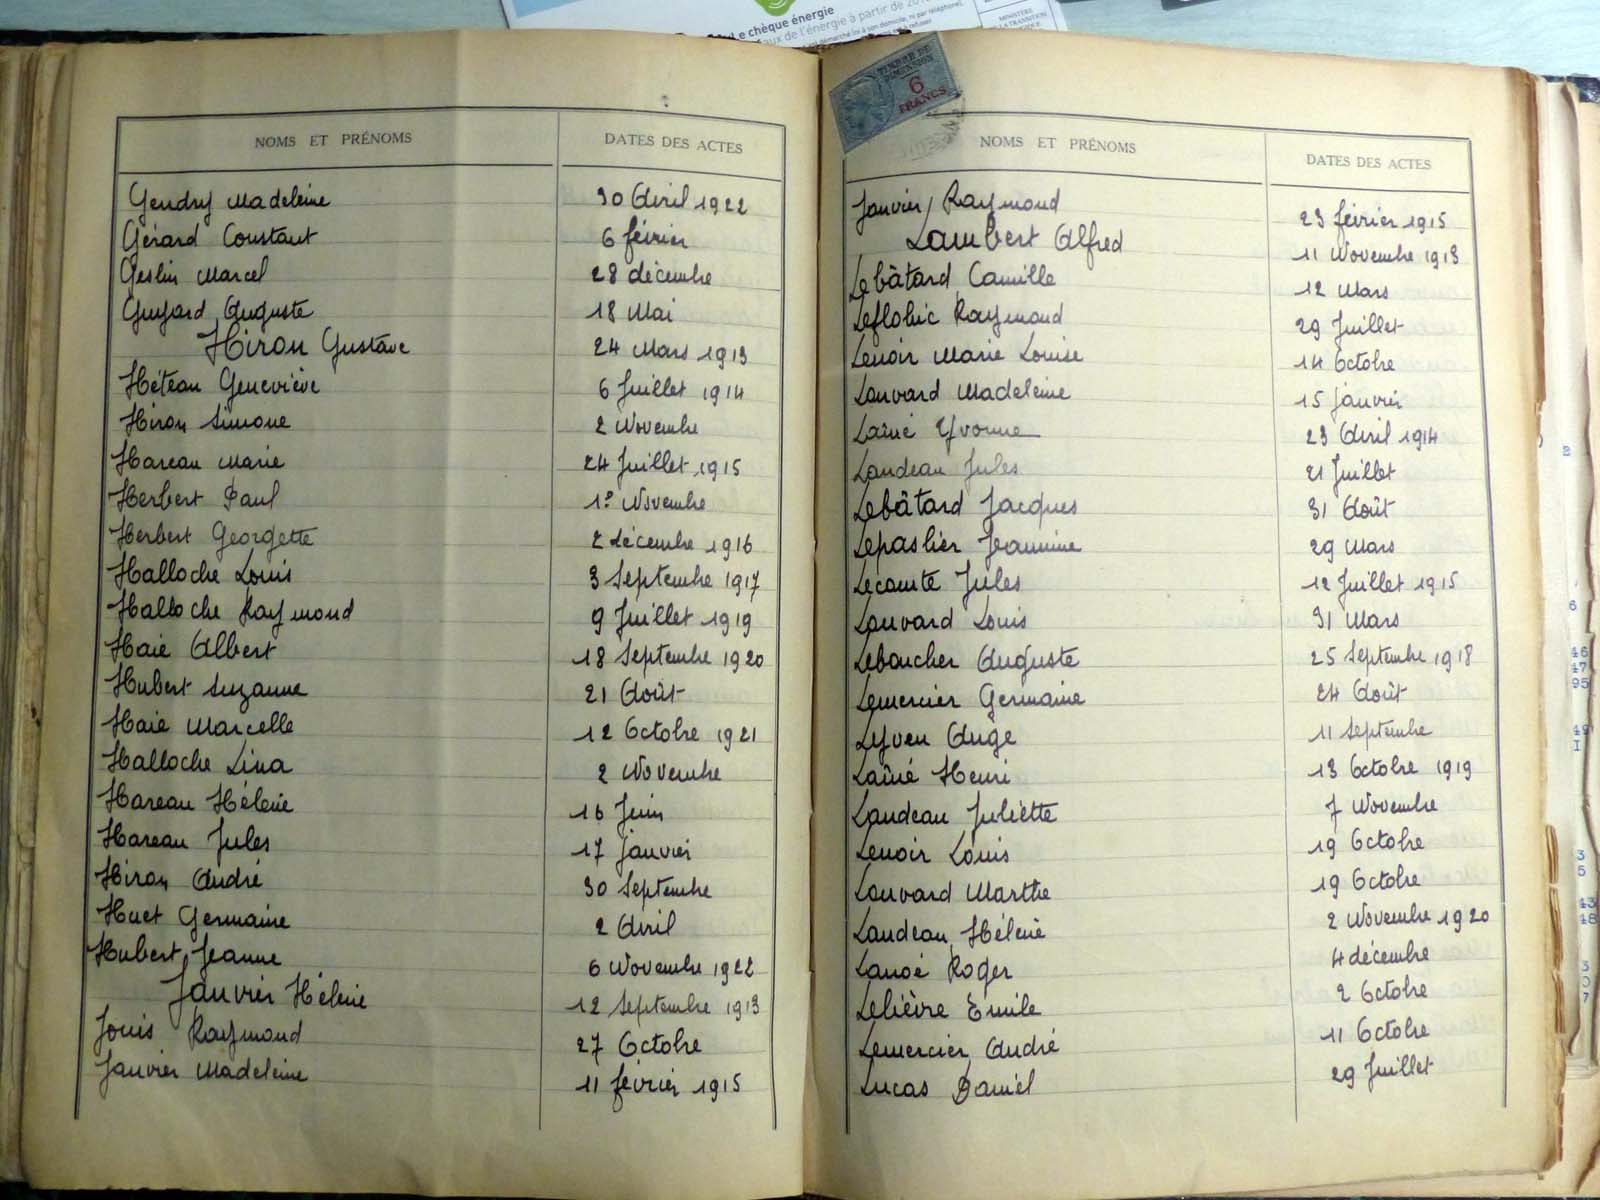 Le chèque énergie
aux de l'énergie à partir de
MINISTÈRE
NOMS ET PRÉNOMS DATES DES ACTES
Gendry Madeleine 30 Avril 1922
Gérard Constant 6 février
Geslin Marcel 28 décembre
Guyard Auguste 18 Mai
Hiron Gustave 24 Mars 1913
Héteau Geneviève 6 Juillet 1914
Hiron Simone 2 Novembre
Hareau Marie 24 Juillet 1915
Herbert Paul 1er Novembre
Herbert Georgette 2 décembre 1916
Halloche Louis 3 Septembre 1917
Halloche Raymond 9 Juillet 1919
Haie Albert 18 Septembre 1920
Hubert Suzanne 21 Août
Haie Marcelle 12 Octobre 1921
Halloche Lina 2 Novembre
Hareau Hélène 16 Juin
Hareau Jules 17 janvier
Hiron André 30 Septembre
Huet Germaine 2 Avril
Hubert Jeanne 6 Novembre 1922
Janvier Hélène 12 Septembre 1913
Jouis Raymond 27 Octobre
Janvier Madeleine 11 février 1915
TIMBRE DE
DIMENSION
6
FRANCS
NOMS ET PRÉNOMS DATES DES ACTES
Janvier Raymond 23 février 1915
Lambert Alfred 11 Novembre 1913
Lebâtard Camille 12 Mars
Leflohic Raymond 29 Juillet
Lenoir Marie Louise 14 Octobre
Louvard Madeleine 15 janvier
Laîné Yvonne 23 Avril 1914
Landeau Jules 21 Juillet
Lebâtard Jacques 31 Août
Lepaslier Jeannine 29 Mars
Lecomte Jules 12 Juillet 1915
Louvard Louis 31 Mars
Leboucher Auguste 25 Septembre 1918
Lemercier Germaine 24 Août
Lyven Ange 11 Septembre
Laîné Henri 13 Octobre 1919
Landeau Juliette 7 Novembre
Lenoir Louis 19 Octobre
Louvard Marthe 19 Octobre
Landeau Hélène 2 Novembre 1920
Lanoé Roger 4 décembre
Lelièvre Emile 2 Octobre
Lemercier André 11 Octobre
Lucas Daniel 29 Juillet